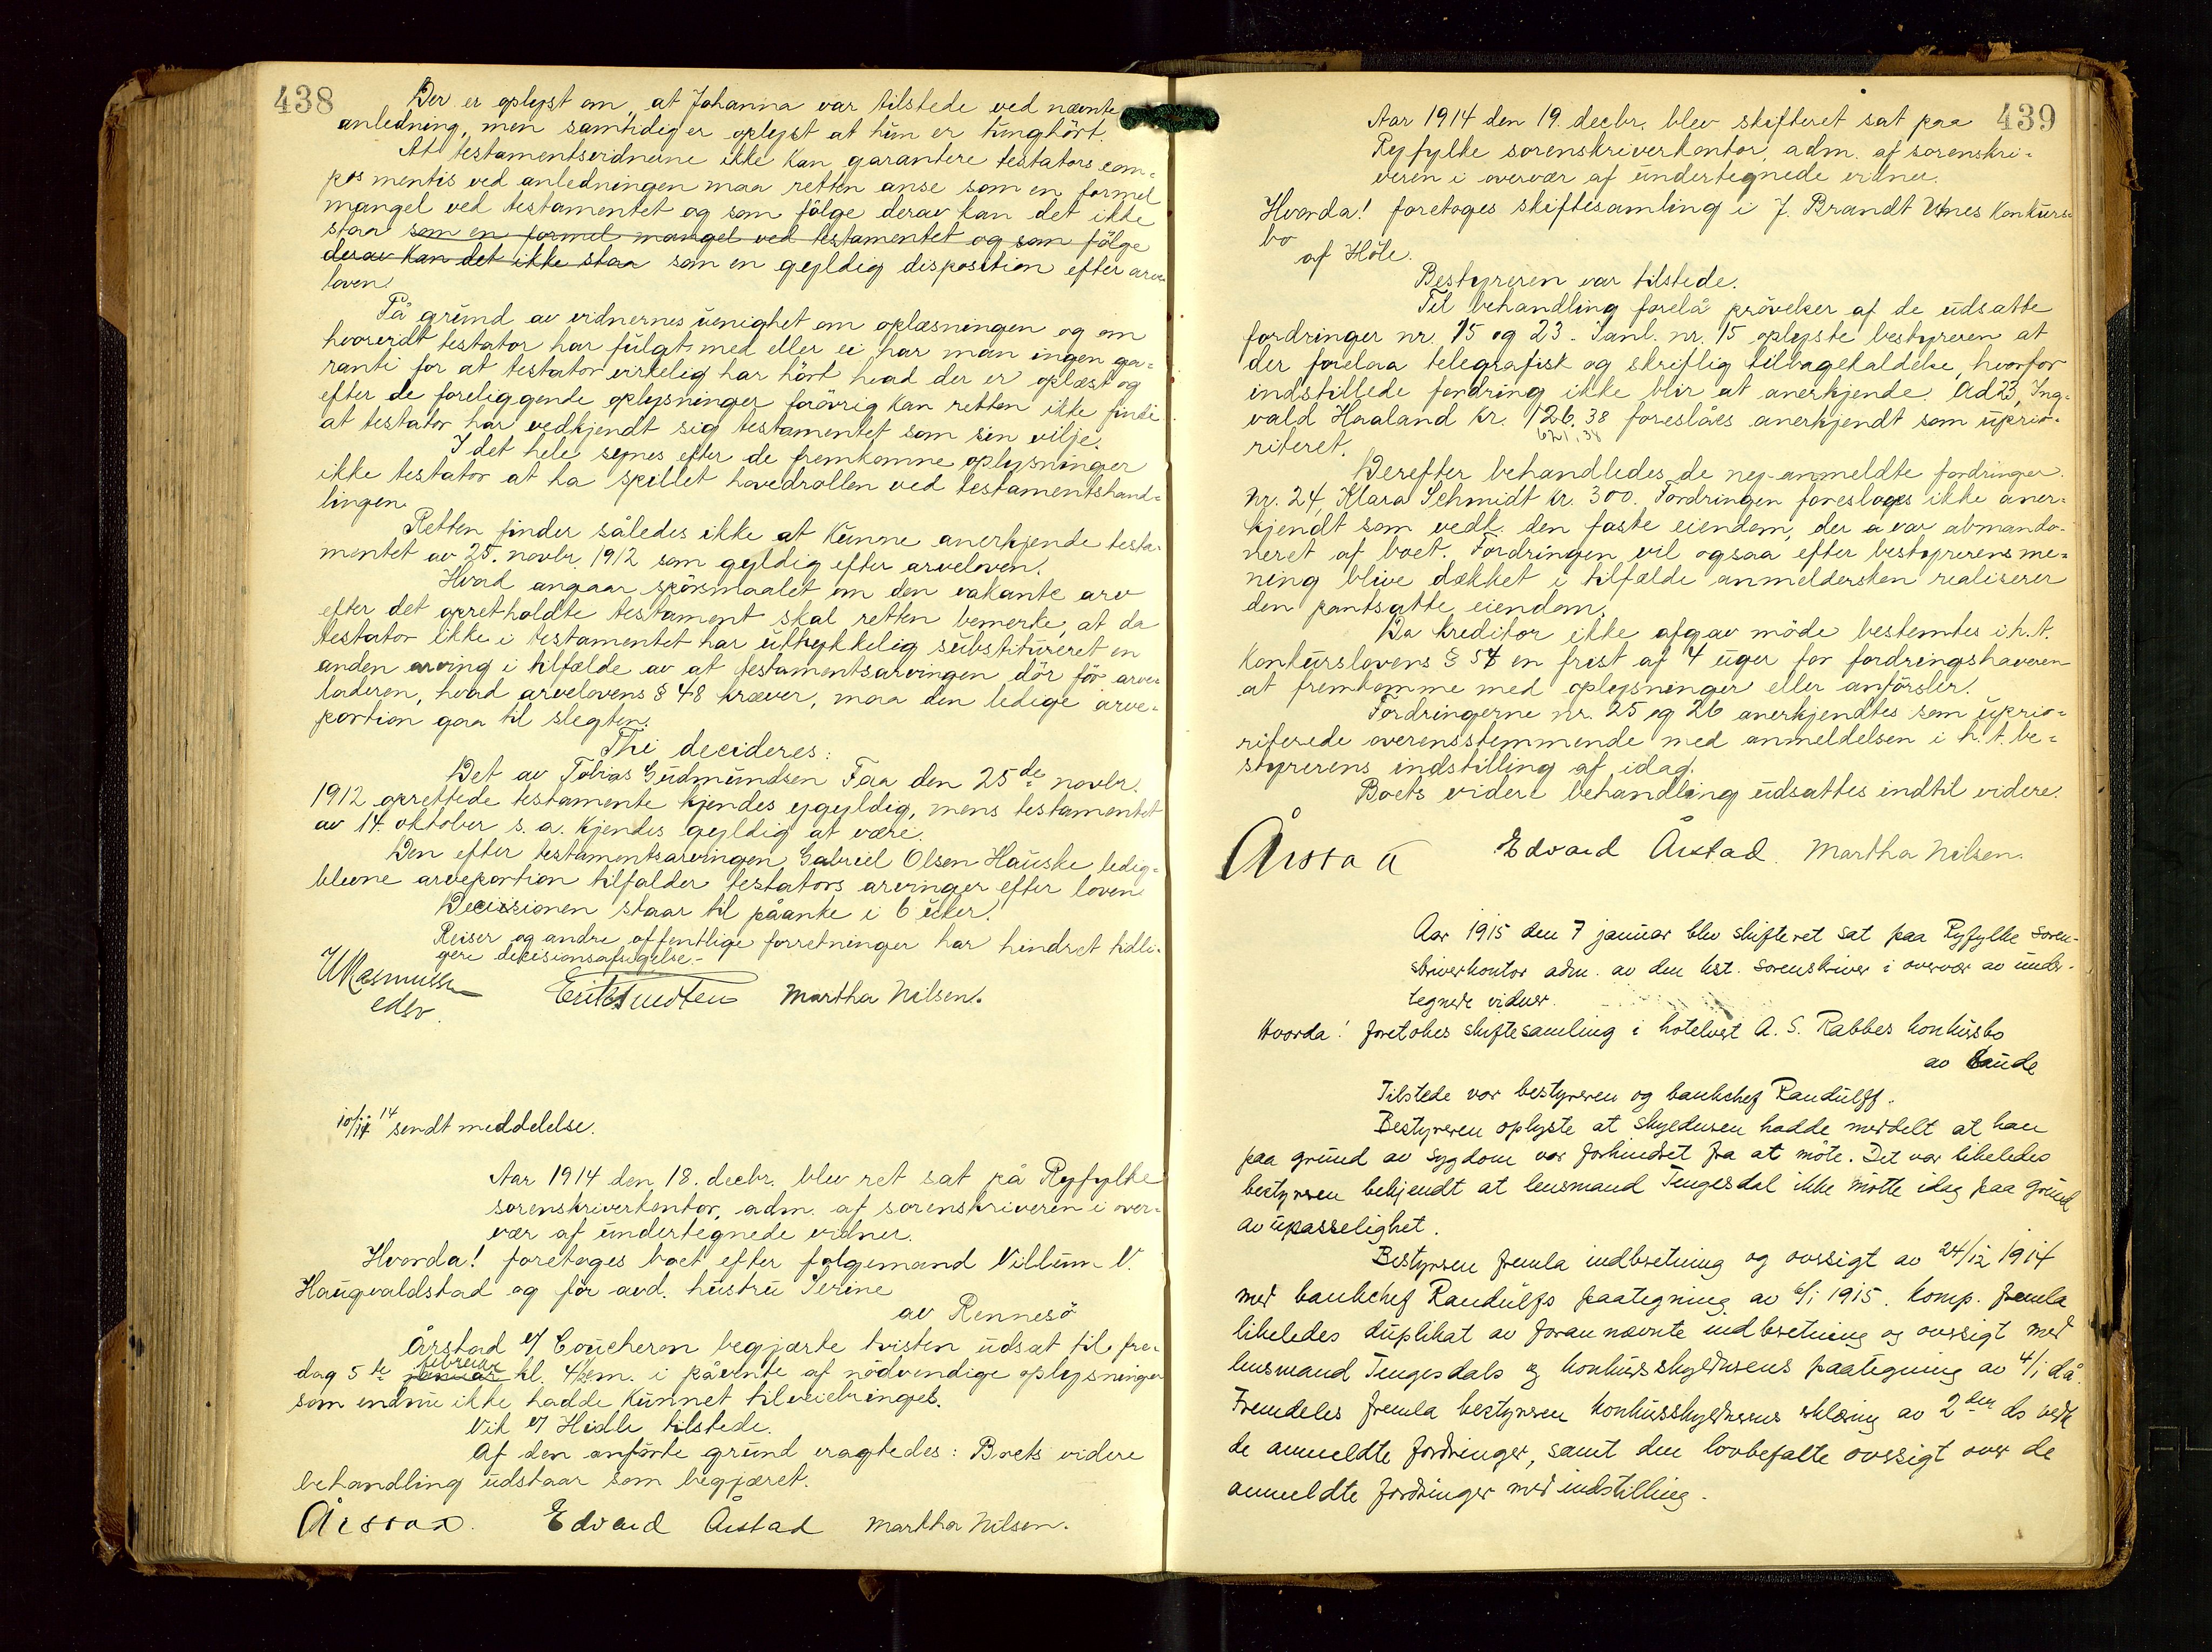 438
Der er oplyst om, at Johanna var tilstede ved nævnte
anledning, men samtidig er oplyst at hun er tunghört.
At testamentsvidnerne ikke kan garantere testators com-
pos mentis ved anledningen maa retten anse som en formel
mangel ved testamentet og som fölge derav kan det ikke
staa som en formel mangel ved testamentet og som fölge
derav kan det ikke staa som en gyldig disposition efter arve-
loven.
På grund av vidnernes uenighet om oplæsningen og om
hvorvidt testator har fulgt med eller ei har man ingen ga-
ranti for at testator virkelig har hört hvad der er oplæst og
efter de foreliggende oplysninger forövrig kan retten ikke finde
at testator har vedkjendt sig testamentet som sin vilje.
I det hele synes efter de fremkomne oplysninger
ikke testator at ha spillet hovedrollen ved testamentshand-
lingen.
Retten finder således ikke at kunne anerkjende testa-
mentet av 25. novbr. 1912 som gyldig efter arveloven.
Hvad angaar spörsmaalet om den vakante arv
efter det opretholdte testament skal retten bemerke, at da
testator ikke i testamentet har uttrykkelig substitueret en
anden arving i tilfælde av at testamentsarvingen dör för arve-
laderen, hvad arvelovens § 48 kræver, maa den ledige arve-
portion gaa til slegten.
Thi decideres:
Det av Tobias Gudmundsen Faa den 25de novbr.
1912 oprettede testamente kjendes ugyldig, mens testamentet
av 14. oktober s. a. kjendes gyldig at være.
Den efter testamentsarvingen Gabriel Olsen Hauske ledig-
blevne arveportion tilfalder testators arvinger efter loven.
Decisionen staar til påanke i 6 uker.
Reiser og andre offentlige forretninger har hindret tidli-
gere decisionsafsigelse.-
Martha Nilsen.
10/12 14 sendt meddelelse.
Aar 1914 den 18. decbr. blev ret sat på Ryfylke
sorenskriverkontor, adm. af sorenskriveren i over-
vær af undertegnede vidner.
Hvorda! foretoges boet efter folgemand Villum V.
Haugvaldstad og för avd. hustru Serine
av Rennesö
Årstad e/ Coucheron begjærte tvisten udsat til fre-
dag 5te januar februar kl. 4½em. i påvente af nödvendige oplysninger
som endnu ikke hadde kunnet tilveiebringes.
Vik e/ Hidle tilstede.
Af den anförte grund eragtedes: Boets videre
behandling udstaar som begjæret.
Årstad. Edvard Årstad Martha Nilsen.
439
Aar 1914 den 19. decbr. blev skifteret sat paa
Ryfylke sorenskriverkontor, adm. af sorenskri-
veren i overvær af undertegnede vidner.
Hvorda! foretoges skiftesamling i J. Brandt Utnes konkurs-
bo
af Höle.
Bestyreren var tilstede.
Til behandling forelå prövelser af de udsatte
fordringer nr. 15 og 23. Sanl. nr. 15 oplyste bestyreren at
der forelaa telegrafisk og skriftlig tilbagekaldelse, hvorfor
indstillede fordring ikke blir at anerkjende. Ad 23, Ing-
vald Haaland kr. 126.38 foreslåes anerkjendt som uprio-
riteret.
Derefter behandledes de ny-anmeldte fordringer.
Nr. 24, Klara Schmidt kr. 300. Fordringen foresloges ikke aner-
kjendt som vedk. den faste eiendom, der a var abmando-
neret af boet. Fordringen vil ogsaa efter bestyrerens me-
ning blive dækket i tilfælde anmeldersken realiserer
den pantsatte eiendom.
Da kreditor ikke afgav möde bestemtes i h. t.
konkurslovens § 54 en frist af 4 uger for fordringshaveren
at fremkomme med oplysninger eller anförsler.
Fordringerne nr. 25 og 26 anerkjendtes som uprio-
riterede overensstemmende med anmeldelsen i h. t. be-
styrerens indstilling af idag.
Boets videre behandling udsattes indtil videre.
Årstad Edvard Årstad. Martha Nilsen.
Aar 1915 den 7 januar blev skifteret sat paa Ryfylke soren-
skriverkontor adm. av den kst. sorenskriver i overvær av under-
tegnede vidner.
Hvorda! foretokes skiftesamling i hotelvert A. S. Rabbes konkursbo
av Saude
Tilstede var bestyreren og bankchef Randulff.
Bestyreren oplyste at skyldneren hadde meddelt at han
paa grund av sygdom var forhindret fra at möte. Det var likeledes
bestyreren bekjendt at lensmand Tengesdal ikke mötte idag paa grund
av upasselighet.
Bestyreren fremla indberetning og oversigt av 24/12 1914
med bankchef Randulffs paategning av 6/1 1915. Komp. fremla
likeledes duplikat av forannævnte indberetning og oversigt med
lensmand Tengesdals og konkursskyldnerens paategning av 4/1 då.
Fremdeles fremla bestyreren konkursskyldnerens erklæring av 2den ds vedk
de anmeldte fordringer, samt den lovbefalte oversigt over de
anmeldte fordringer med indstilling.